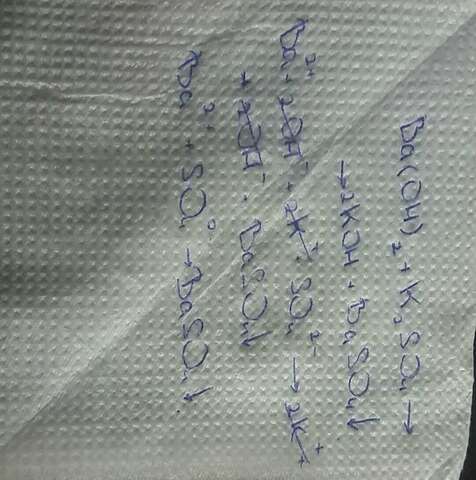 Ba(OH)₂ + K₂SO₄ →
→ 2KOH + BaSO₄↓
Ba²⁺ + 2OH⁻ + 2K⁺ + SO₄²⁻ → 2K⁺
+ 2OH⁻ + BaSO₄↓
Ba²⁺ + SO₄ → BaSO₄↓